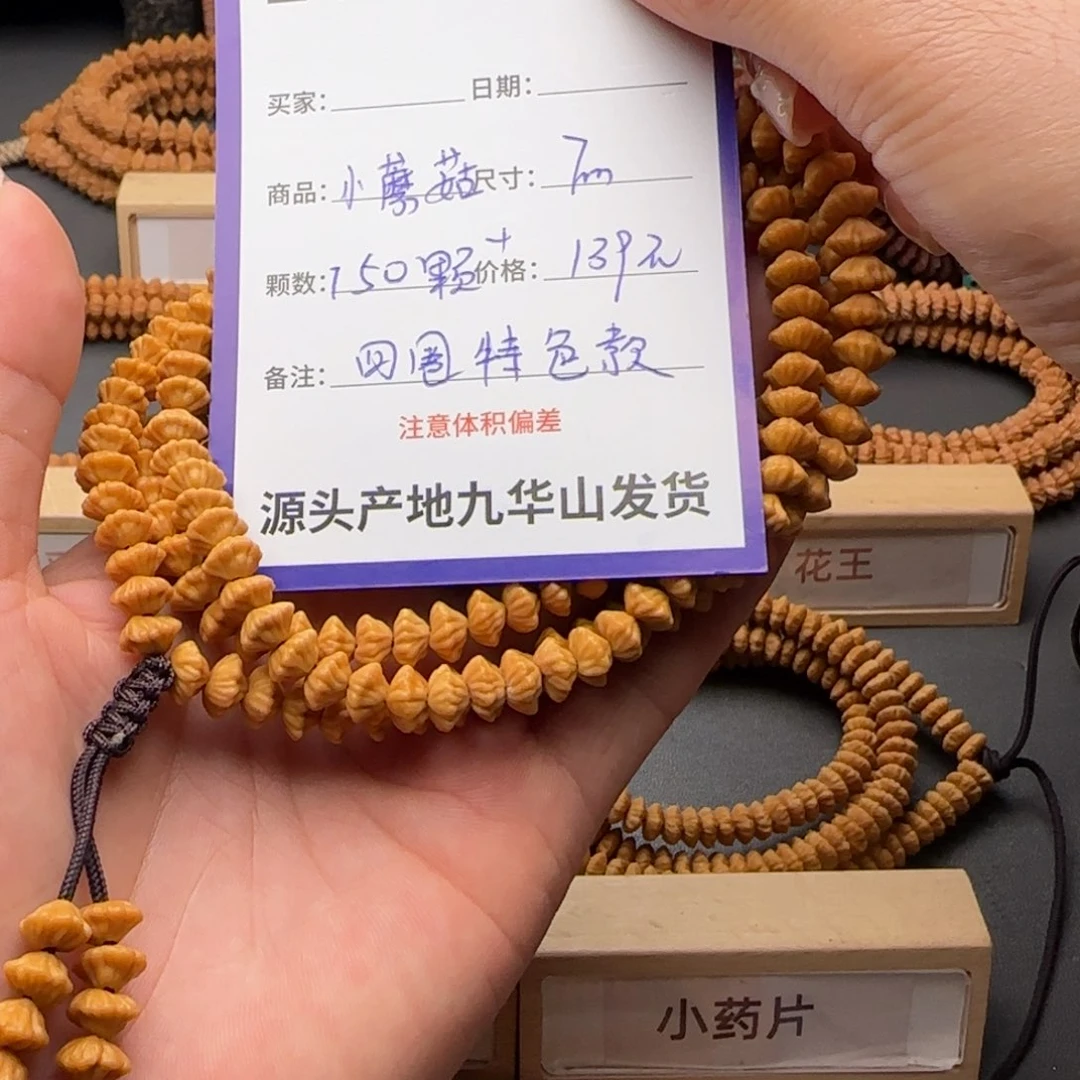 买家： 日期：
商品：小蘑菇 尺寸：7m
颗数：150颗+ 价格：139元
备注：四圈特色款
注意体积偏差
源头产地九华山发货
花王
小药片